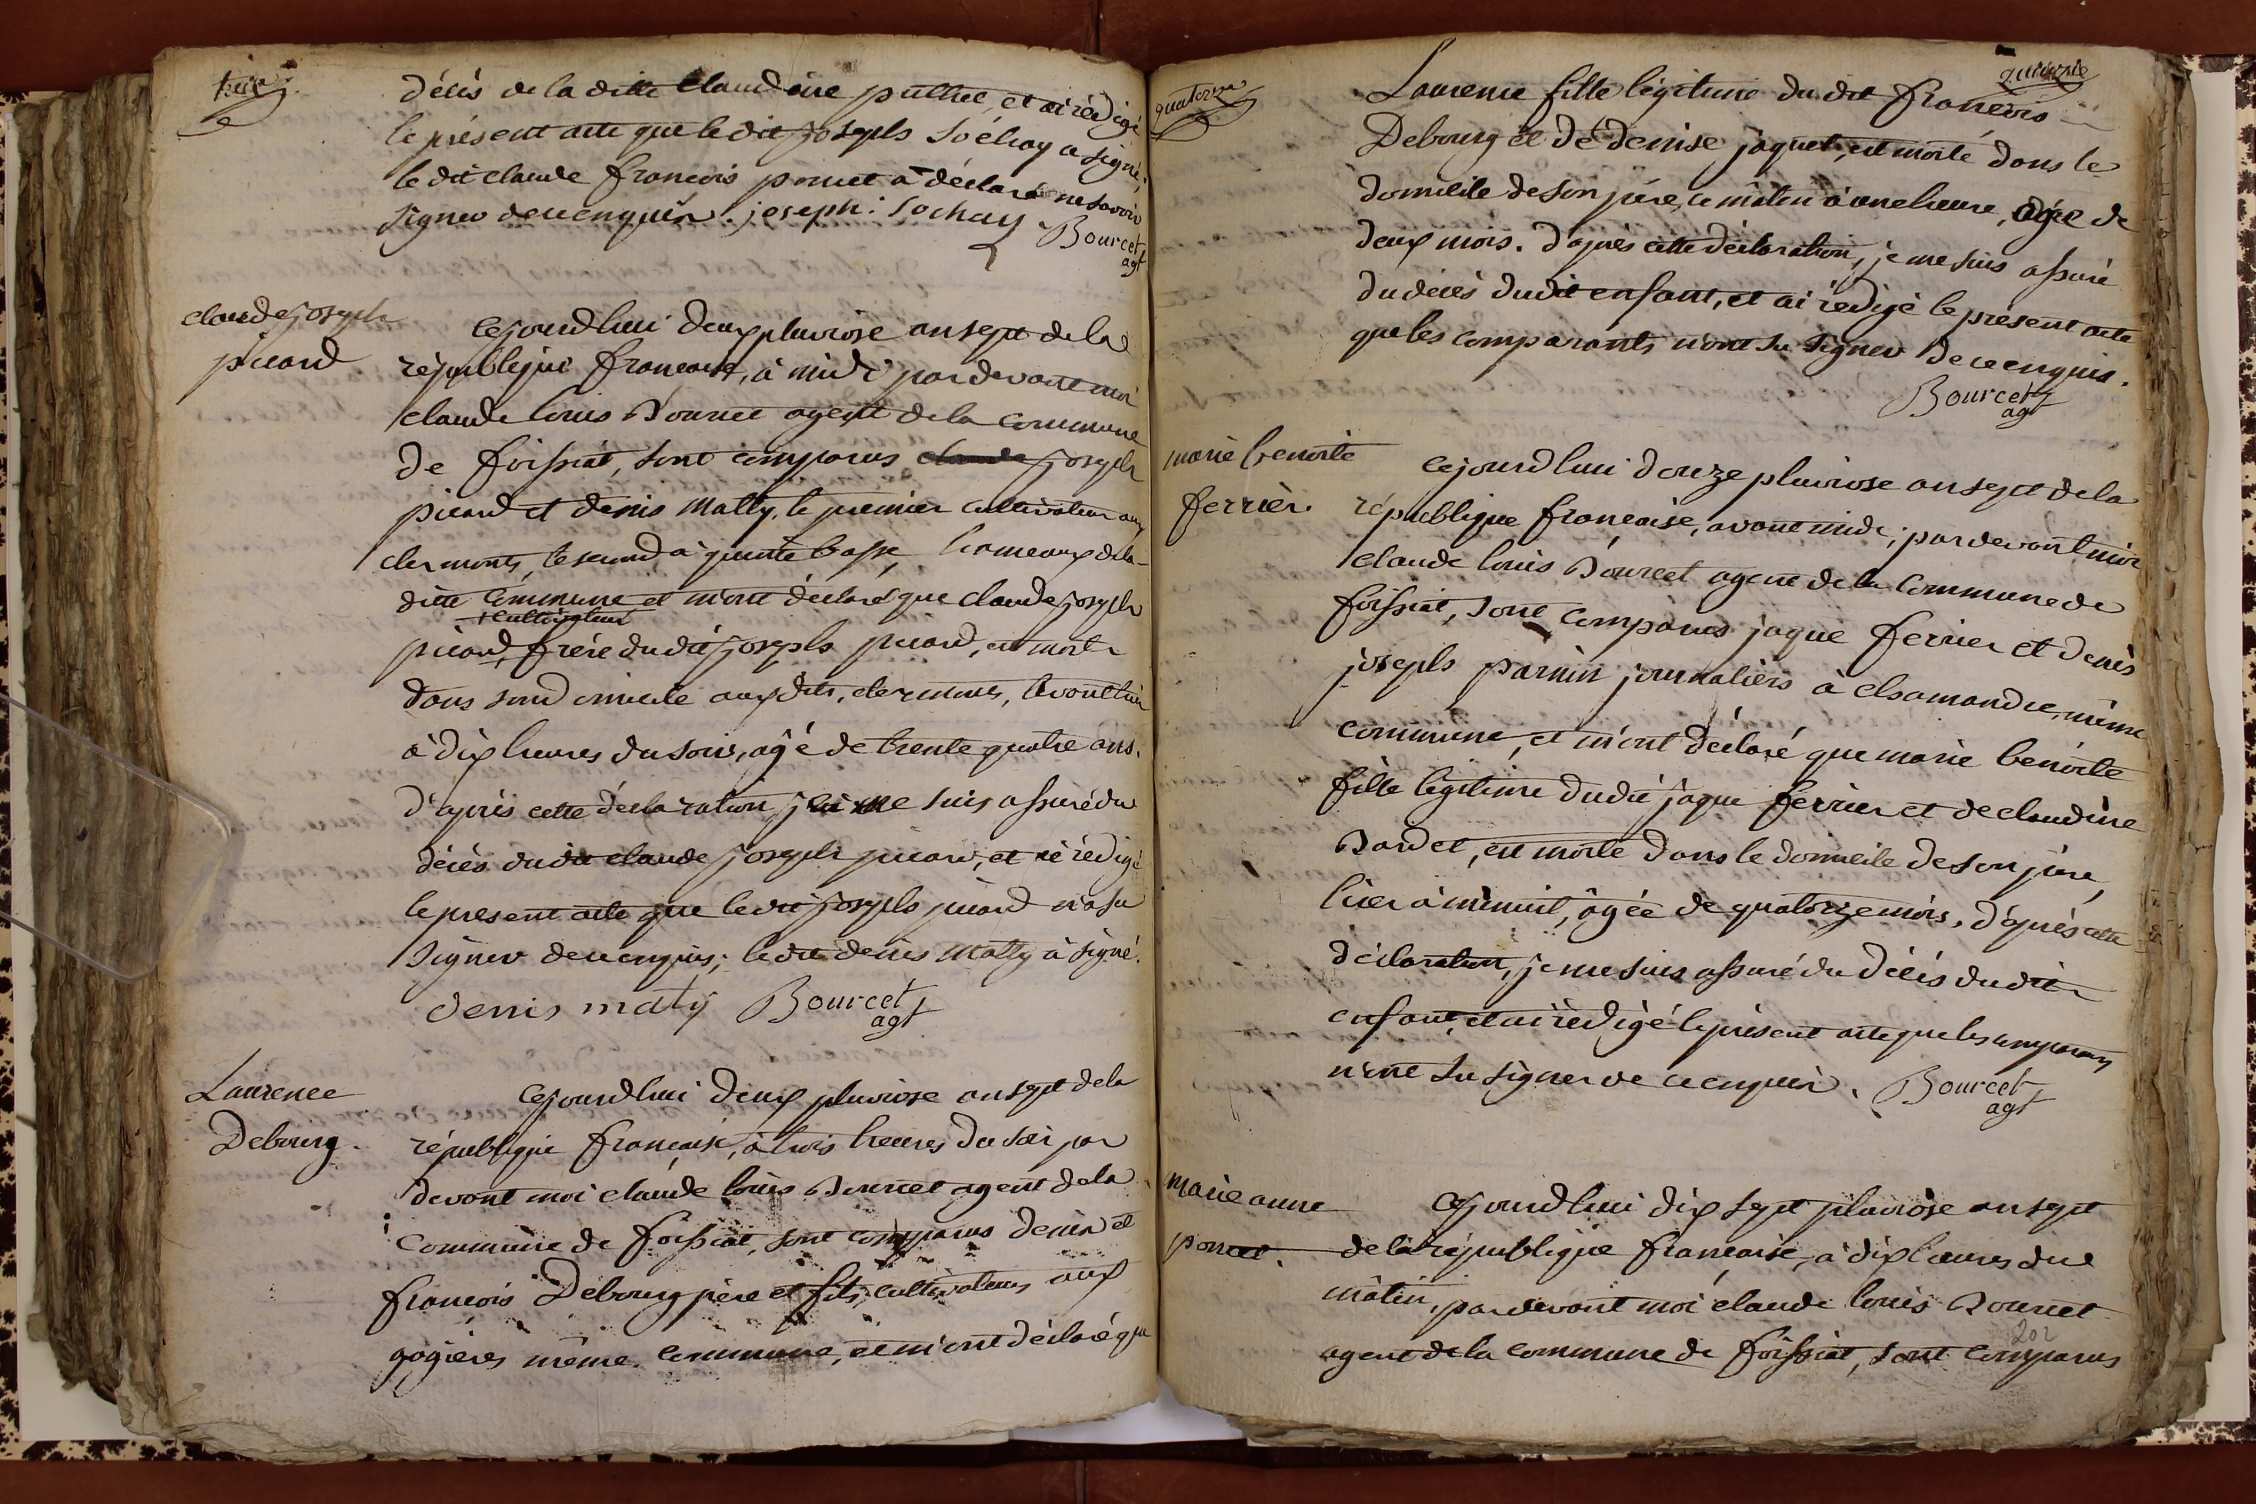 décès de la ditte Claudine puthet, et ai rédigé
le présent acte que le dit joseph Sochay a signé;
le dit claude françois poncet a déclaré ne savoir
signer de ce enquis. joseph : Sochay Bourcet
agt
claude joseph
picard
Cejourdhui deux pluviose an sept de la
république francaise, à midi pardevant moi
claude louis Bourcet agent de la commune
de foissiat, sont comparus claude joseph
picard et denis Matty, le premier cultivateur aux
clermonts, le second à basse, hameaux de la
ditte Commune et m'ont déclaré que claude joseph
+ cultivateur
picard, frère dudit joseph picard, est mort
dans son domicile aux dits clermonts, avant hier
à dix heures du soir, agé de trente quatre ans.
d'après cette déclaration, je me suis assuré du
décès dudit claude joseph picard, et ai rédigé
le present acte que le dit joseph picard n'a su
signer de ce enquis; le dit denis Matty a signé.
denis maty Bourcet
agt
Laurence
Debourg.
Cejourdhui deux pluviose an sept de la
république francaise, à trois heures du soir par
devant moi claude louis Bourcet agent de la
Commune de foissiat, sont comparus denis et
francois Debourg père et fils, cultivateurs aux
gogières même commune, et m'ont déclaré que
quatorze
quinzie
Laurence fille légitime du dit francois
Debourg et de denise jaquet, est morte dans le
domicile de son père, ce matin à une heure, agée de
deux mois. d'après cette déclaration, je me suis assuré
du décès dudit enfant, et ai rédigé le présent acte
que les comparants n'ont su signer de ce enquis.
Bourcet
agt
marie benoite
ferrier.
Cejourdhui douze pluviose an sept de la
république francaise, avant midi; pardevant moi
claude louis Bourcet agent de la Commune de
foissiat, sont comparus jaque ferrier et denis
joseph parnin journaliers à chamandre, même
commune, et m'ont déclaré que marie benoite
fille légitime dudit jaque ferrier et de claudine
Bardet, est morte dans le domicile de son père,
hier à minuit, agée de quatorze mois. d'après cette
déclaration, je me suis assuré du décès dudit
enfant, et ai rédigé le présent acte que les comparans
n'ont su signer de ce enquis. Bourcet
agt
marie anne
poncet.
Cejourdhui dix sept pluviose an sept
de la république francaise, à dix heures du
matin, pardevant moi claude louis Bourcet
agent de la commune de foissiat, sont comparus
202